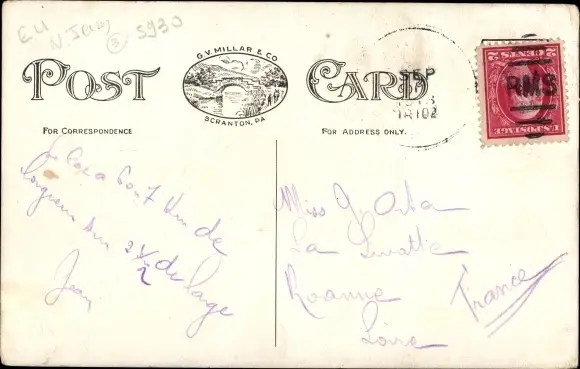 EU
N.J(ab) (3) 5930
G.V. MILLAR & CO
SCRANTON, PA
POST CARD
FOR CORRESPONDENCE
FOR ADDRESS ONLY.
SEP
RMS
U.S. POSTAGE
2 CENTS 2
6 ou 7 km de
longueur sur 2 1/2 de large
Jean
Miss
La
Roanne
Loire
France